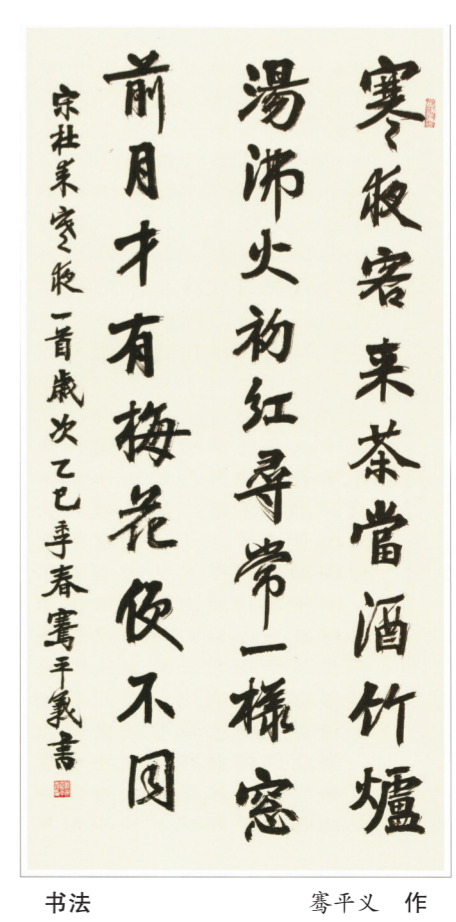 寒夜客来茶當酒竹爐
湯沸火初紅尋常一樣窓
前月才有梅花便不同
宋杜耒寒夜一首歲次乙巳季春騫平義書
书法
骞平义 作